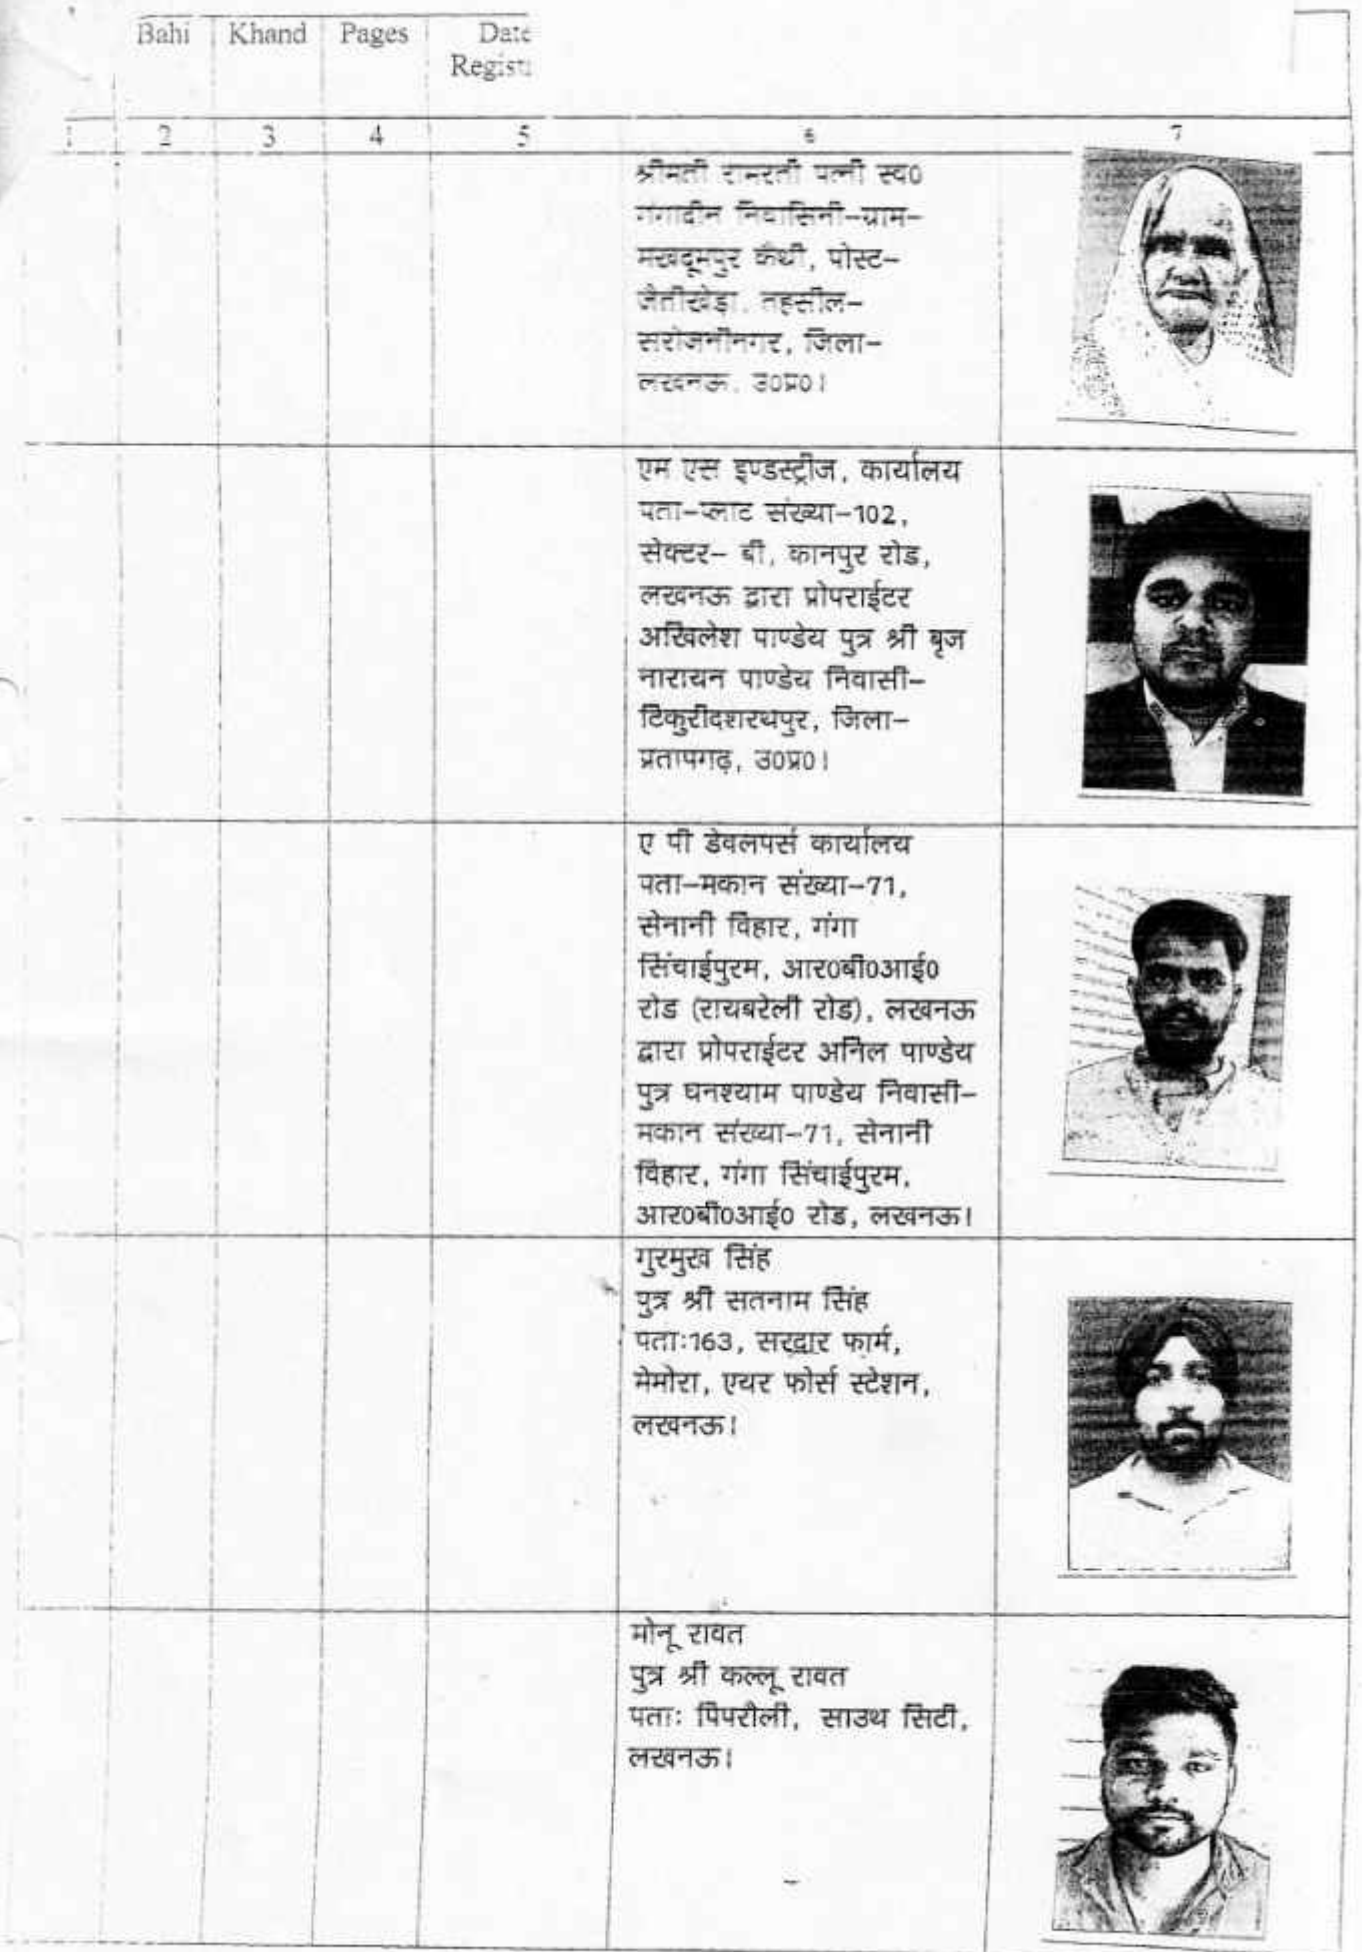 Bahi Khand Pages Date
Regist
1 2 3 4 5 6 7
श्रीमती रामरती पत्नी स्व0
गंगादीन निवासिनी-ग्राम-
मखदूमपुर कैथी, पोस्ट-
जैतीखेड़ा, तहसील-
सरोजनीनगर, जिला-
लखनऊ, उ0प्र0।
एम एस इण्डस्ट्रीज, कार्यालय
पता-प्लाट संख्या-102,
सेक्टर- बी, कानपुर रोड,
लखनऊ द्वारा प्रोपराईटर
अखिलेश पाण्डेय पुत्र श्री बृज
नारायन पाण्डेय निवासी-
टिकुरीदशरथपुर, जिला-
प्रतापगढ़, उ0प्र0।
ए पी डेवलपर्स कार्यालय
पता-मकान संख्या-71,
सेनानी विहार, गंगा
सिंचाईपुरम, आर0बी0आई0
रोड (रायबरेली रोड), लखनऊ
द्वारा प्रोपराईटर अनिल पाण्डेय
पुत्र घनश्याम पाण्डेय निवासी-
मकान संख्या-71, सेनानी
विहार, गंगा सिंचाईपुरम,
आर0बी0आई0 रोड, लखनऊ।
गुरमुख सिंह
पुत्र श्री सतनाम सिंह
पताः163, सरद्वार फार्म,
मेमोरा, एयर फोर्स स्टेशन,
लखनऊ।
मोनू रावत
पुत्र श्री कल्लू रावत
पताः पिपरौली, साउथ सिटी,
लखनऊ।